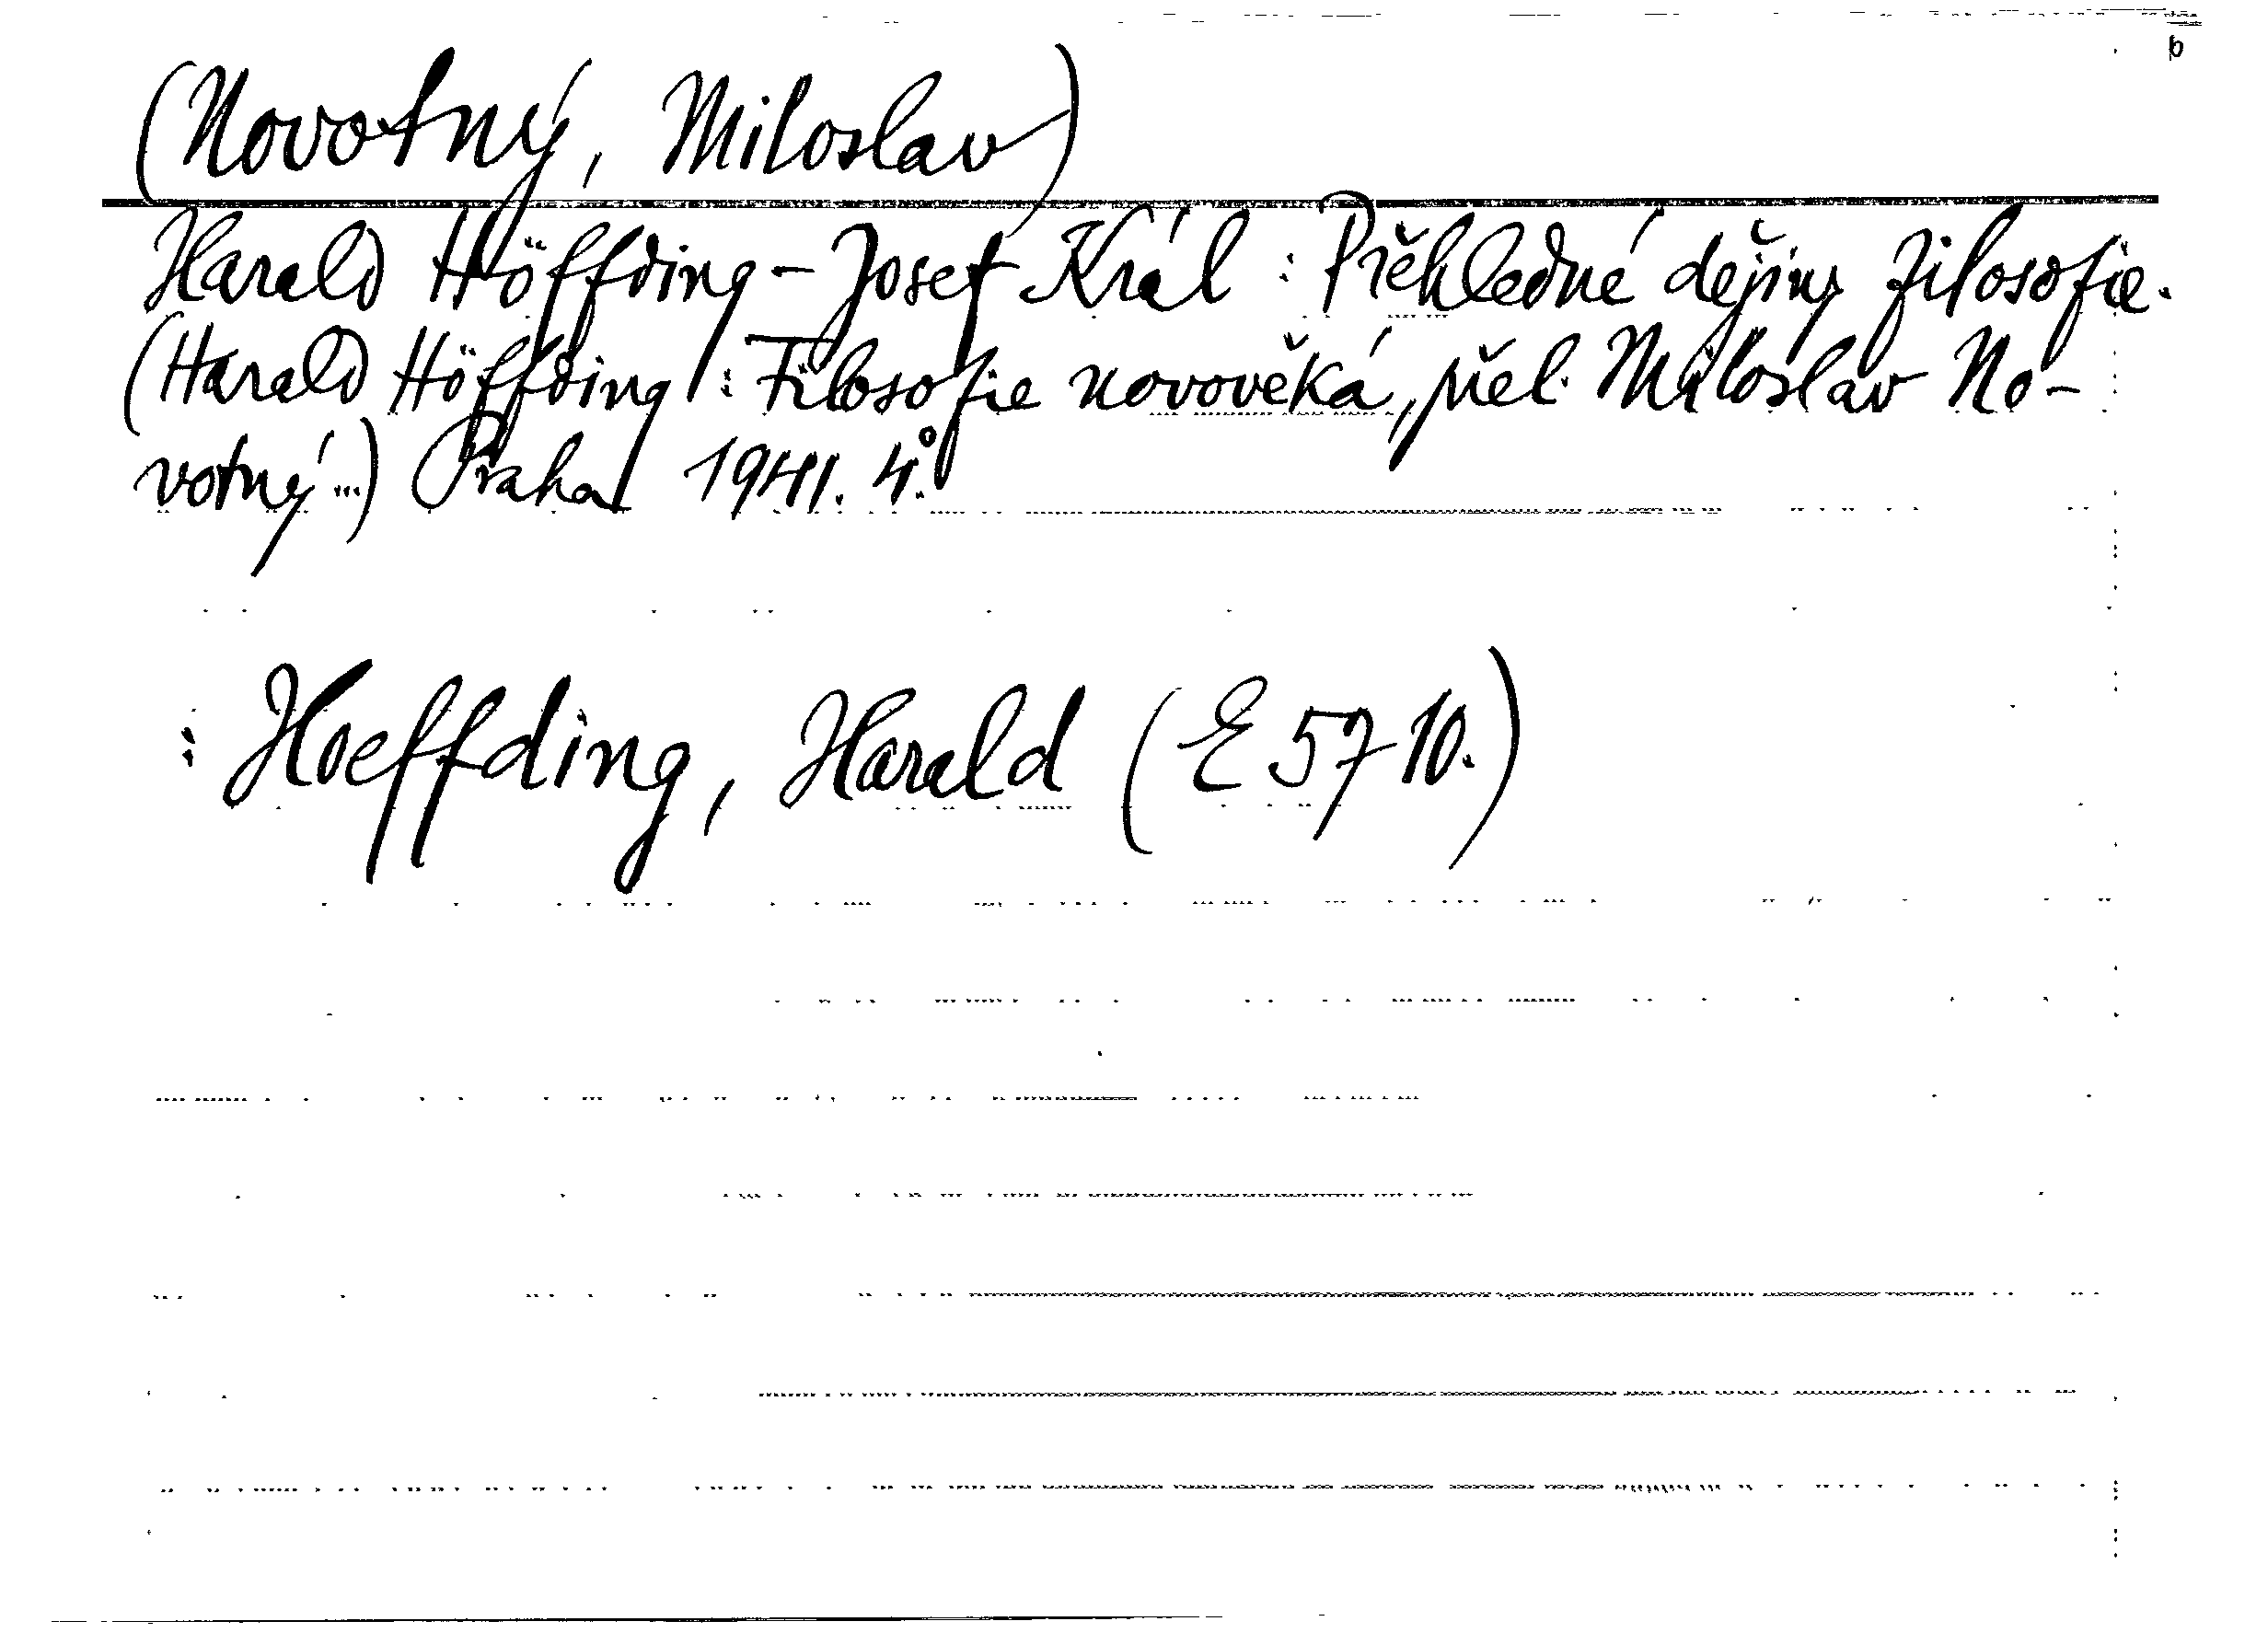 (Novotný, Miloslav)
Harald Höffding - Josef Král : Přehledné dějiny filosofie.
(Harald Höffding : Filosofie novověká, přel. Miloslav No-
votný...) Praha 1941. 4°.
: Hoeffding, Harald (E 5710.)